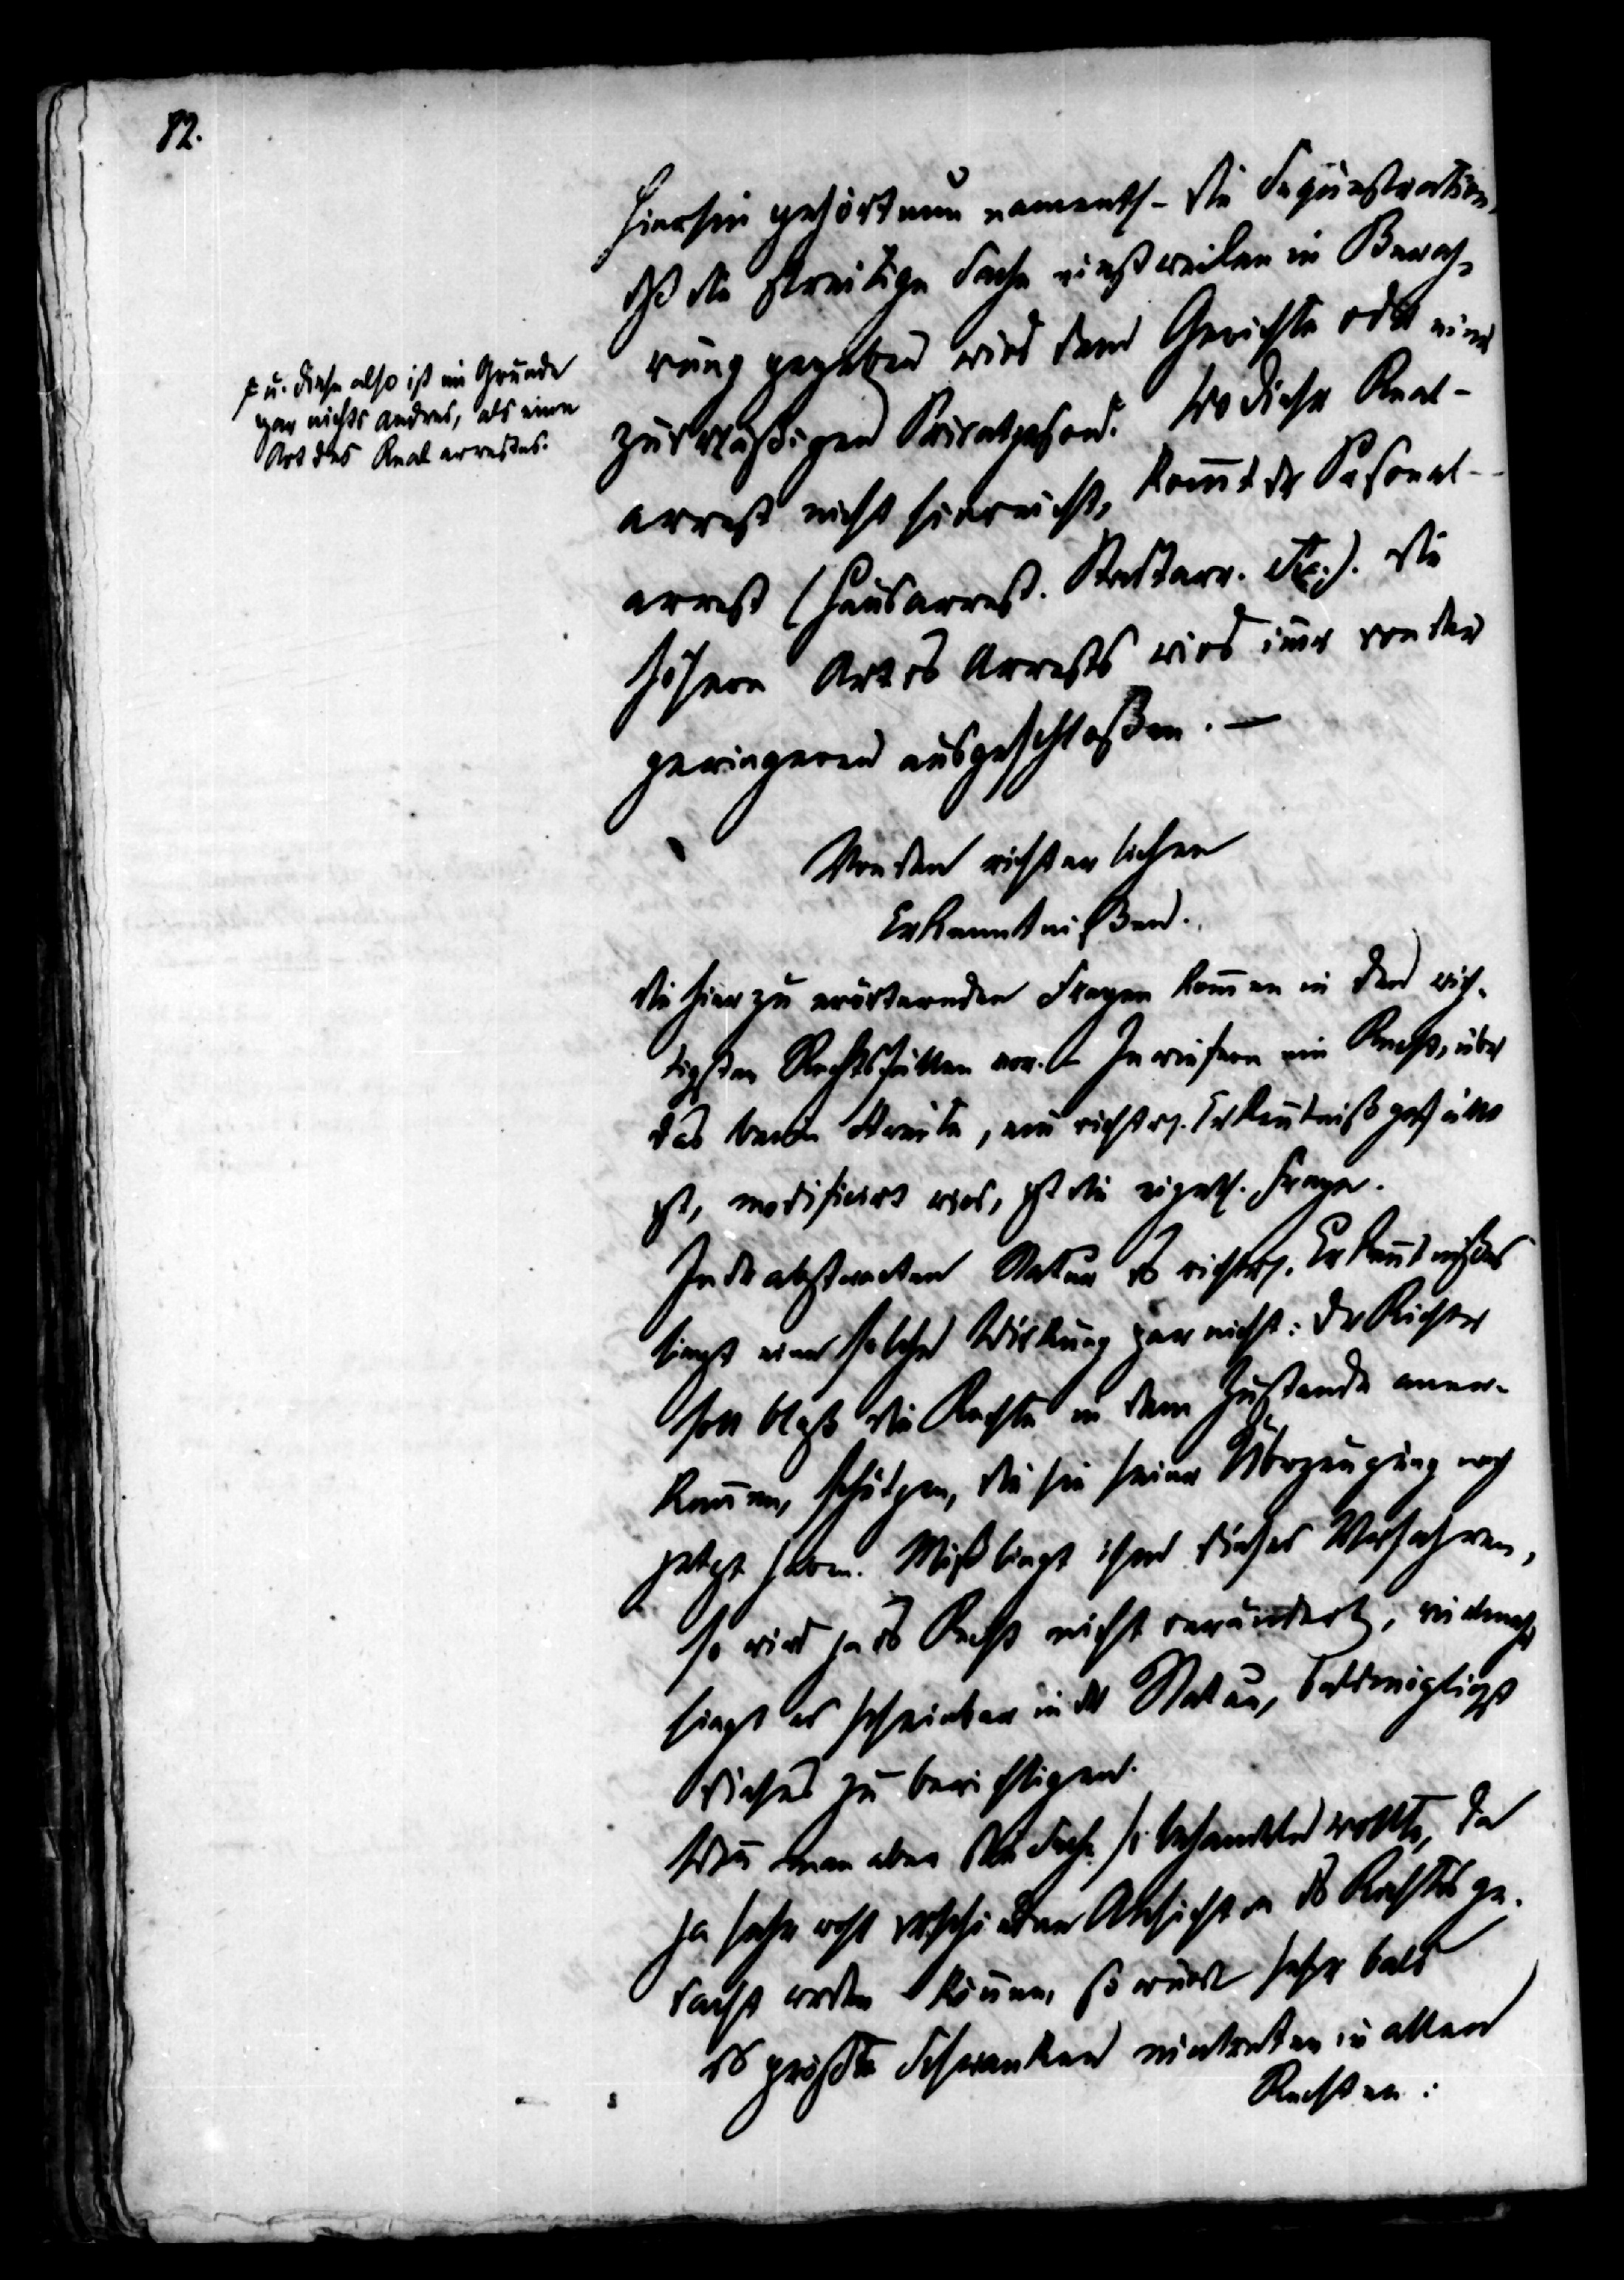 82.
Hierhin gehört nun namentl. die Sequestration,
dß die streitige Sache einstweilen in Verwah-
rung gegeben wird dem Gerichte oder einer
zuverläßigen Privatperson. Wo dieser Real-
arrest nicht hinreicht, kom̄t der Personal-
arrest (Hausarrest. Stadtarr. etc.). Die
höhern Art ds Arrests wird im̄er von der
geringeren ausgeschloßen. —
+ u. diese also ist im Grunde
gar nichts andres, als eine
Art des Realarrestes.
Von den richterlichen
Erkenntnißen.
Die hier zu erörternden Fragen kom̄en in den wich-
tigsten Rechtsfällen vor. – In wiefern ein Recht, über
das beim Streite, ein richterl. Erken̄tniß gefällt
ist, modificirt wird, ist die eigentl. Frage.
In der abstracten Natur ds richterl. Erken̄tnißes
liegt eine solche Wirkung gar nicht: der Richter
soll bloß die Rechte in dem Zustande aner-
ken̄en, schützen, die sie seiner Überzeugung nach
jetzt haben. Mißlingt ihm dieses Verfahren,
so wird ja ds Recht nicht verändert, vielmehr
liegt es scheinbar in der Natur, baldmöglichst
dieses zu berichtigen.
Wen̄ man aber die Sache so behandeln wollte, da
ja sehr wohl verschiedene Ansichten ds Rechtes ge-
dacht werden kön̄en, so würde sehr bald
ds größte Schwanken eintreten in allen
Rechten: